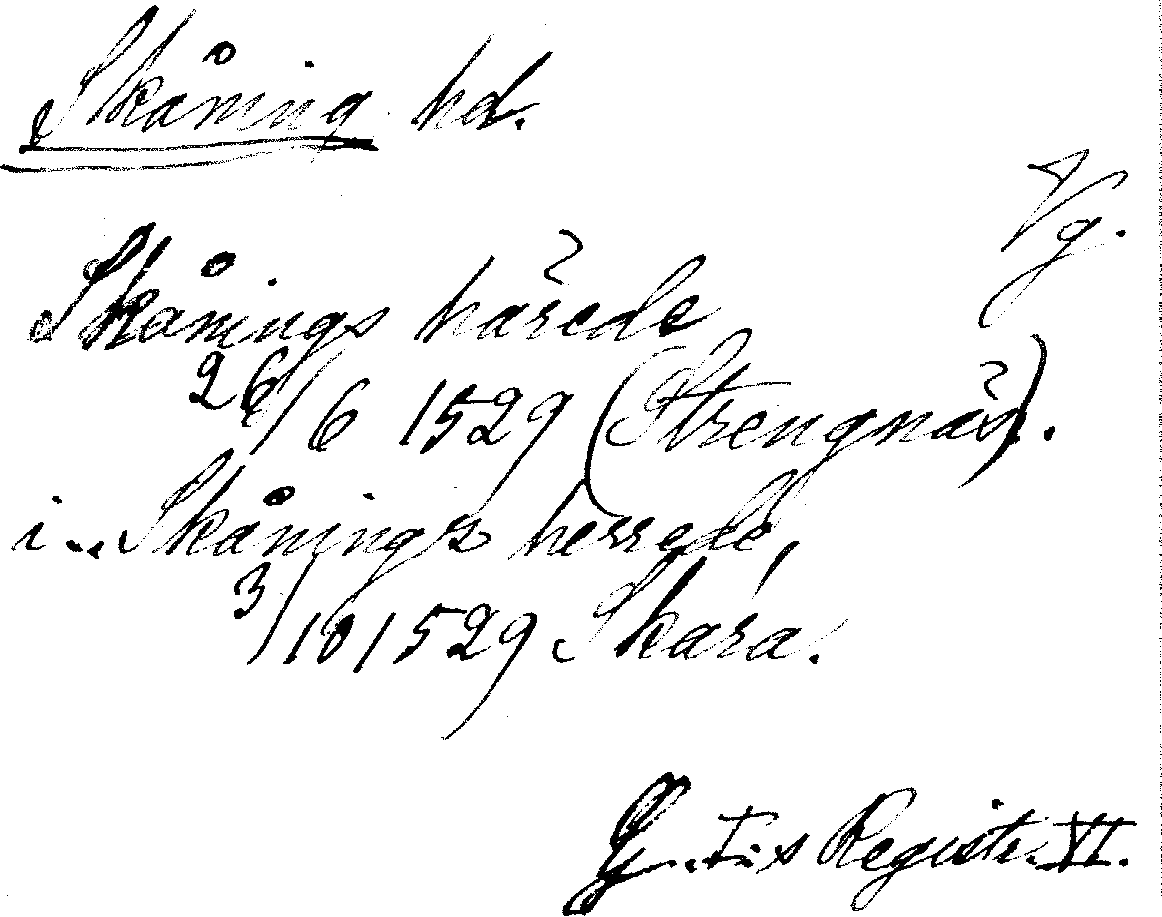 Skåning hd.
Vg.
Skånings härede
26/6 1529 (Strengnäs).
i .. Skånings herrede,
3/10 1529 Skara.
G. I:s Registr. VI.